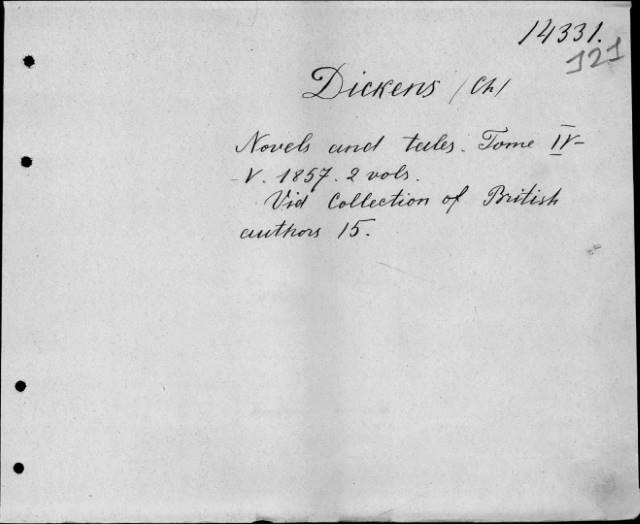 14331.
121
Dickens /Ch/
Novels and tales. Tome IV-
-V. 1857. 2 vols.
Vid Collection of British
authors 15.